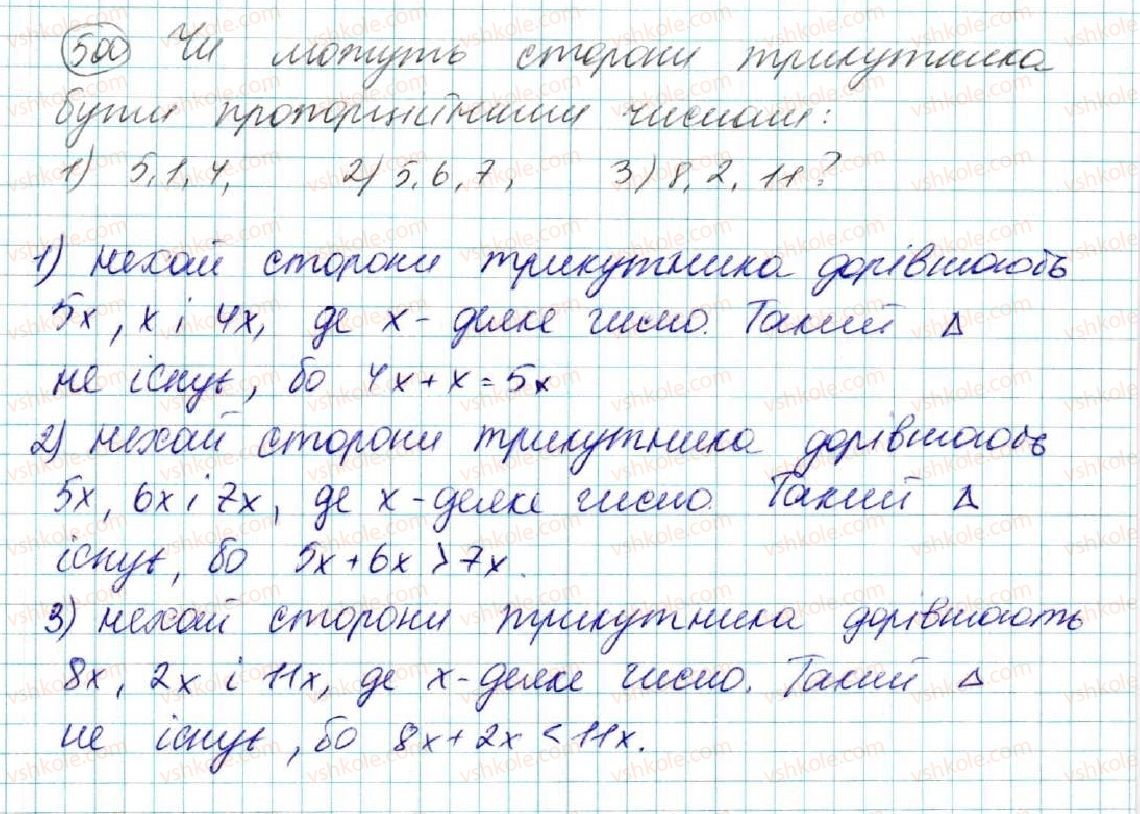 500 Чи можуть сторони трикутника
бути пропорційними числам:
1) 5,1,4, 2) 5,6,7, 3) 8,2,11?
1) нехай сторони трикутника дорівнюють
5x, x і 4x, де x - деяке число. Такий Δ
не існує, бо 4x+x=5x
2) нехай сторони трикутника дорівнюють
5x, 6x і 7x, де x - деяке число. Такий Δ
існує, бо 5x+6x>7x.
3) нехай сторони трикутника дорівнюють
8x, 2x і 11x, де x - деяке число. Такий Δ
не існує, бо 8x+2x<11x.
vshkole.com